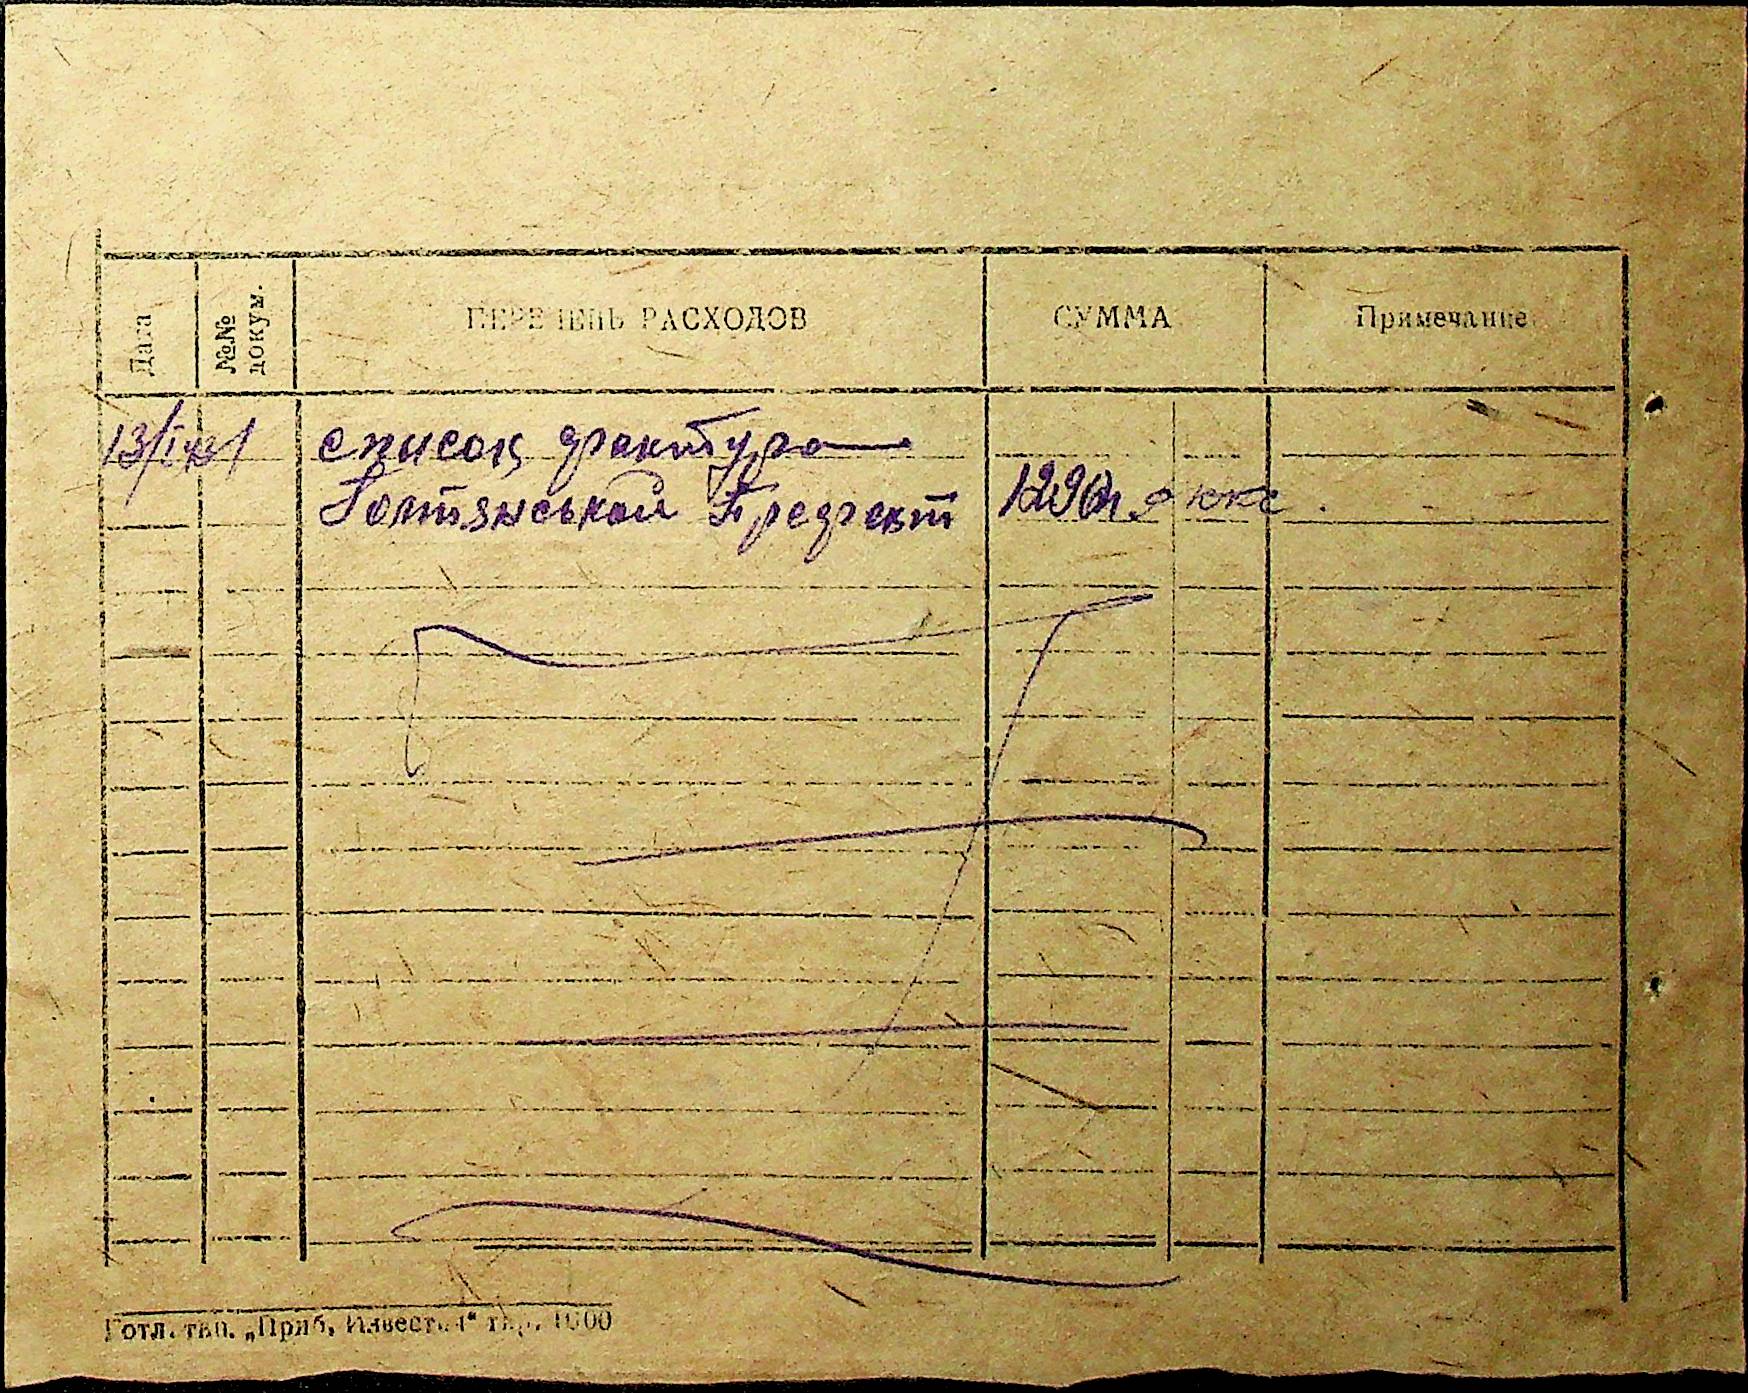 Дата
№№ докум.
ПЕРЕЧЕНЬ РАСХОДОВ
СУММА
Примечание
13/I 43 1 список фактура
Голтянськой Префект
Готл. тип. „Приб, Известия“ тир. 1000